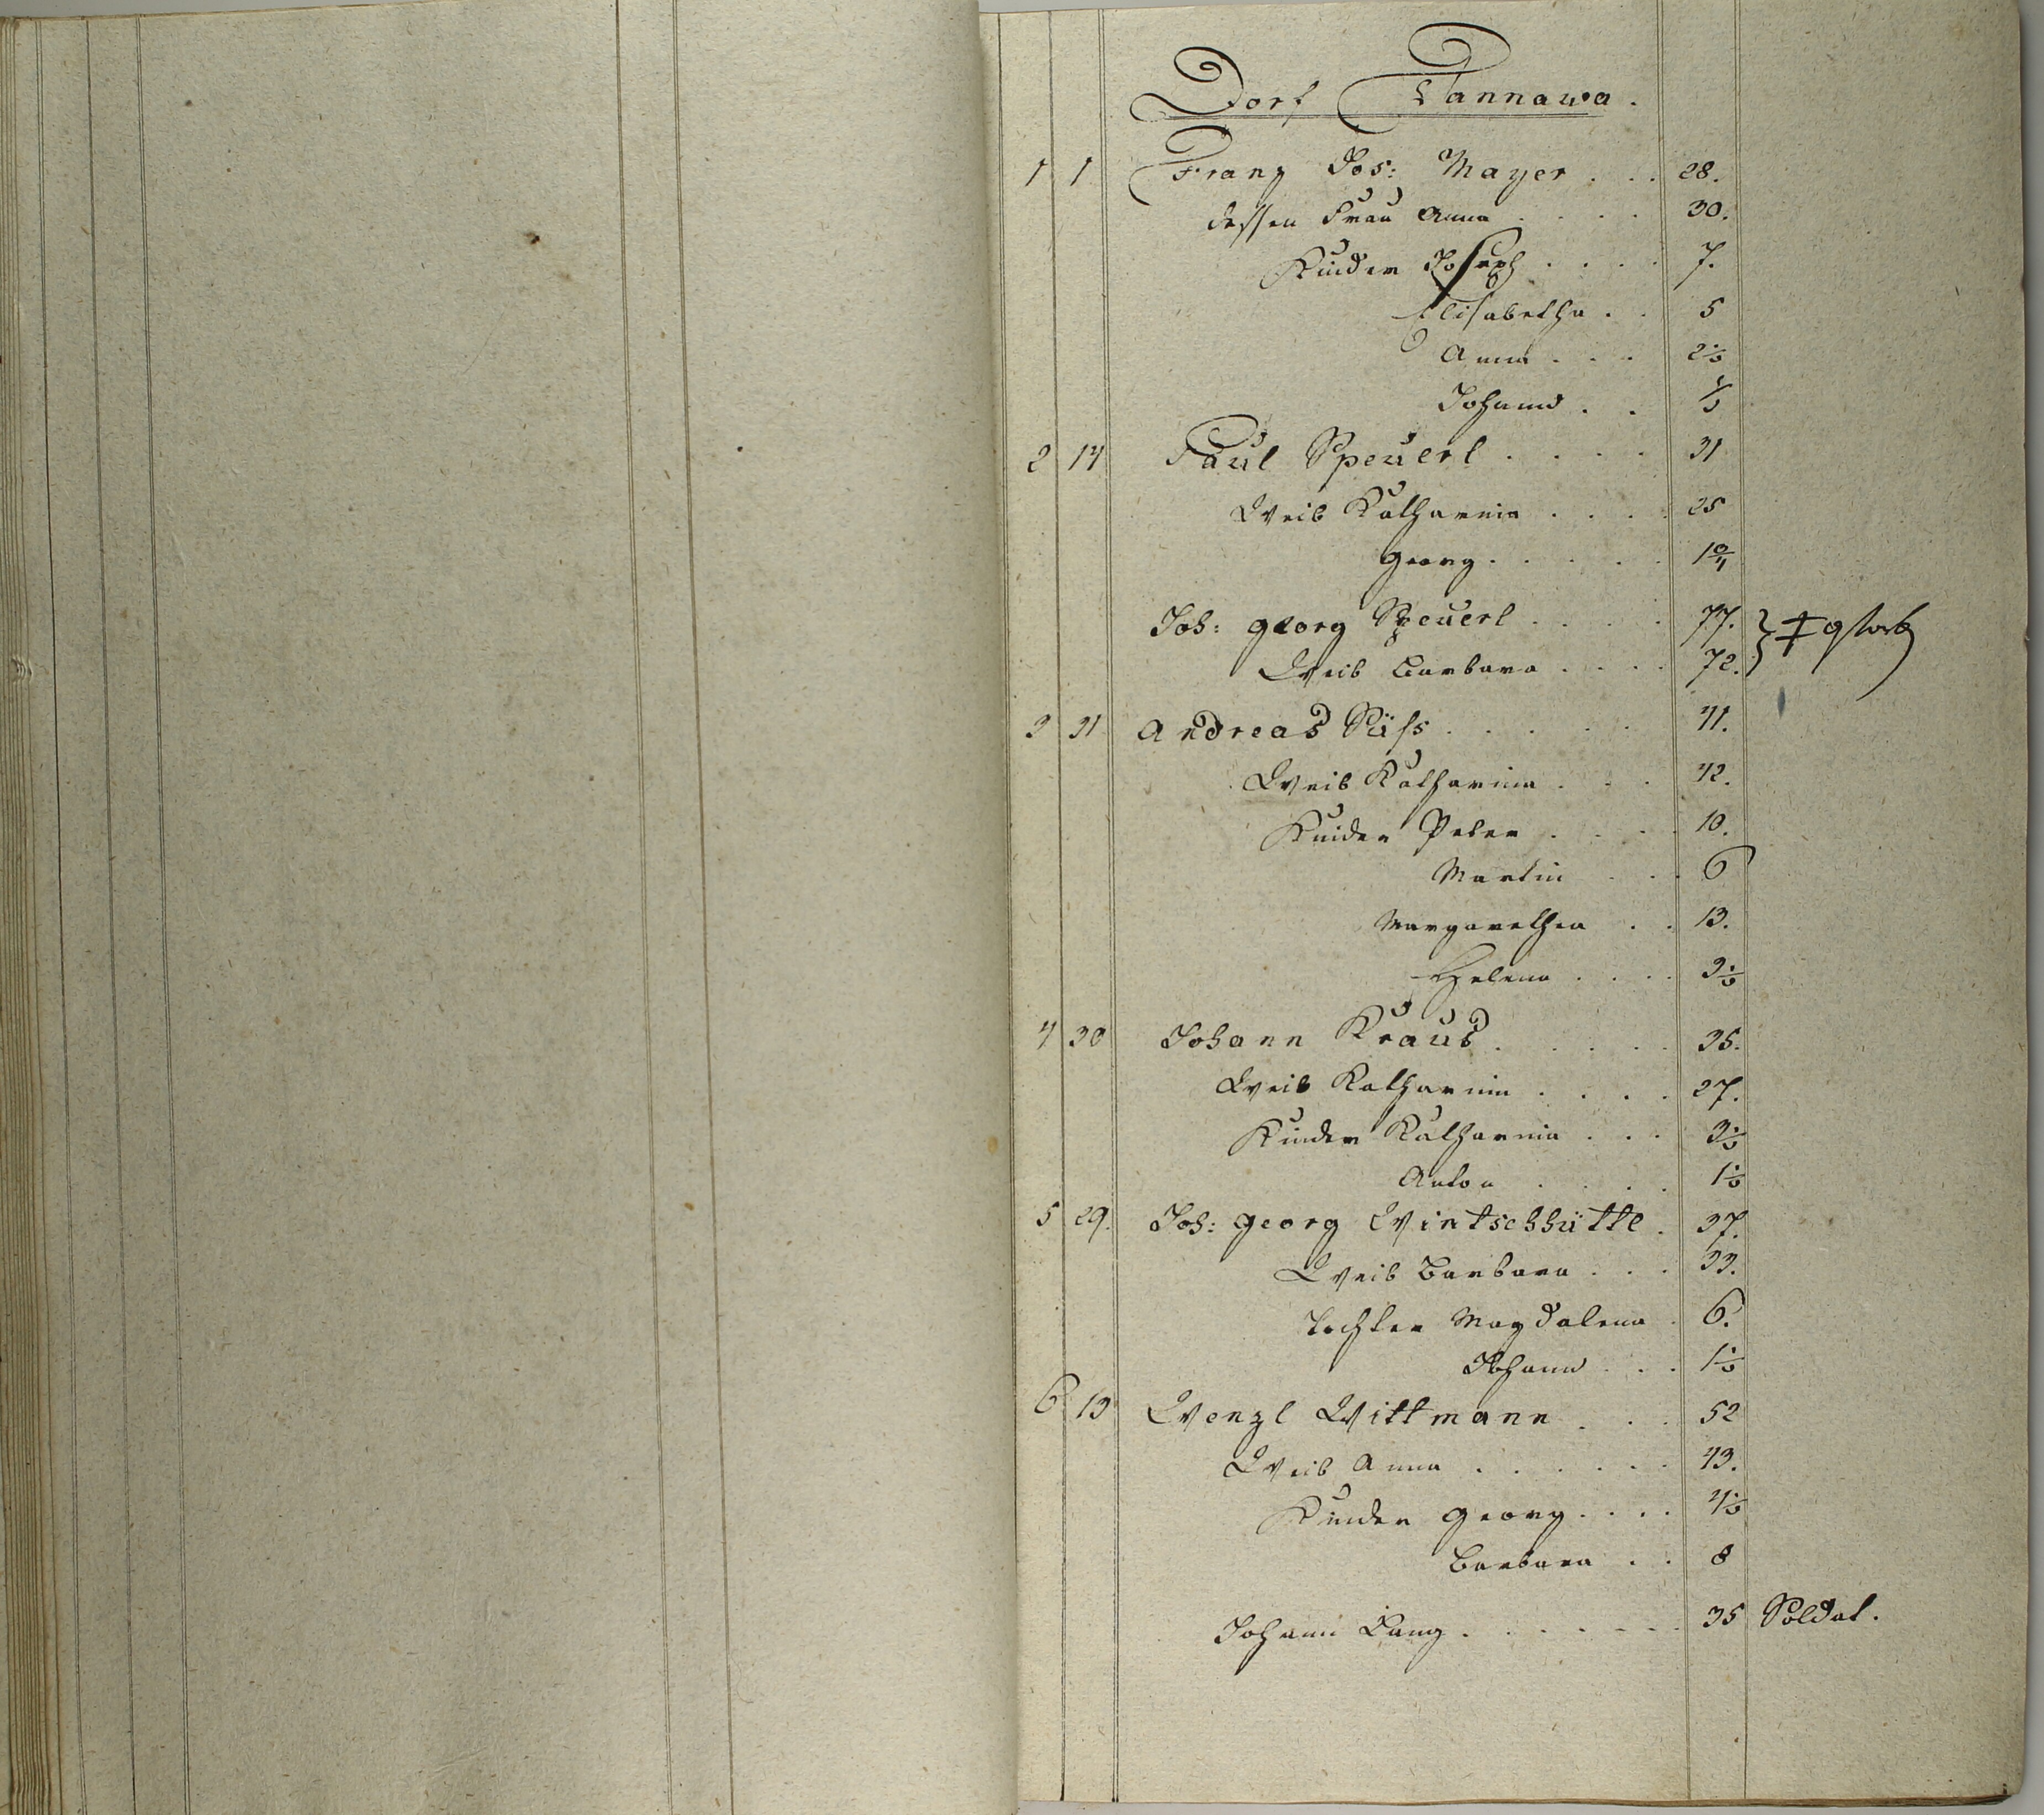 Dorf Tannawa.
1 1 Franz Jos: Mayer . . . 28.
dessen Frau Anna . . . . 30.
Kinder Joseph . . . . 7.
Elisabetha . . 5
Anna . . . 2½
Johann . . ½
2 14 Paul Speuerl . . . . 31
Weib Katharina . . . . 25
Georg . . . . .
Joh: Georg Speuerl . . . . 77.
Weib Barbara . . . . 72. } ‡ gstorb
3 31 Andreas Süß . . . . . 41.
Weib Katharina . . . 42.
Kinder Peter . . . . 10.
Martin . . . 6
Margaretha . . 13.
Helena . . . . 3½
4 30 Johann Kraus . . . . . 35.
Weib Katharina . . . . 27.
Kinder Katharina . . . 3½
Anton . . . . 1½
5 29. Joh: Georg Wintschhüttl . 37.
Weib Barbara . . . 33.
Tochter Magdalena . 6.
Johann . . . 1½
6 13 Wenzl Wittmann . . . 52
Weib Anna . . . . . . 43.
Kinder Georg . . . . 4½
Barbara . . 8
Johann Lang . . . . . . . 35 Soldat.